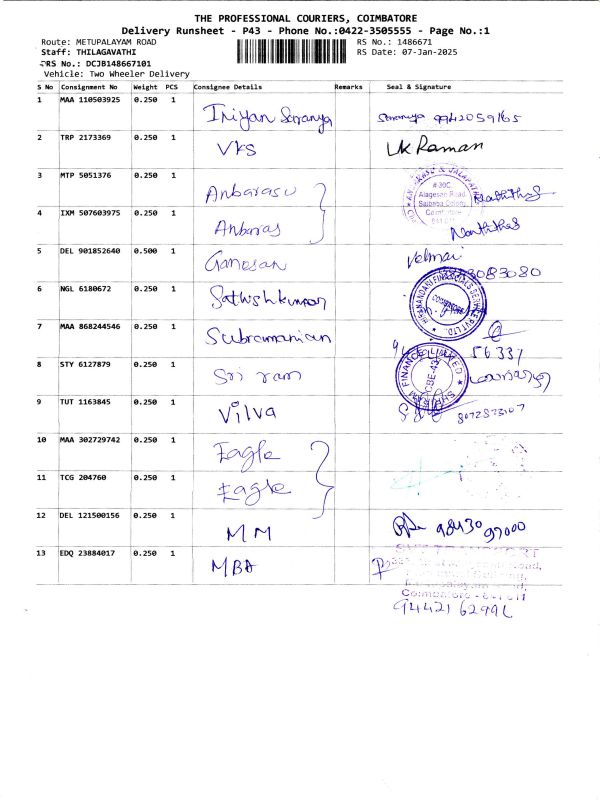 THE PROFESSIONAL COURIERS, COIMBATORE
Delivery Runsheet - P43 - Phone No.:0422-3505555 - Page No.:1
Route: METUPALAYAM ROAD
RS No.: 1486671
Staff: THILAGAVATHI
RS Date: 07-Jan-2025
RS No.: DCJB148667101
Vehicle: Two Wheeler Delivery
S No Consignment No Weight PCS Consignee Details Remarks Seal & Signature
1 MAA 110503925 0.250 1 Iniyan Saranya Saranya 9942059165
2 TRP 2173369 0.250 1 VKS VK Raman
3 MTP 5051376 0.250 1 Anbarasu
# 30C, Alagesan Road
Saibaba Colony
Coimbatore
4 IXM 507603975 0.250 1 Anbaras
5 DEL 901852640 0.500 1 Ganesan Velmai
6 NGL 6180672 0.250 1 Sathishkumar
7 MAA 868244546 0.250 1 Subramanian 56337
8 STY 6127879 0.250 1 Sri ram
9 TUT 1163845 0.250 1 Vilva
10 MAA 302729742 0.250 1 Eagle
11 TCG 204760 0.250 1 Eagle
12 DEL 121500156 0.250 1 MM 9843097000
13 EDQ 23884017 0.250 1 MBA
Coimbatore - 641 011